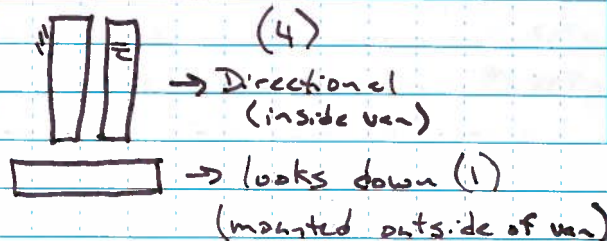 (4)
→ Directional
(inside van)
→ looks down (1)
(mounted outside of van)